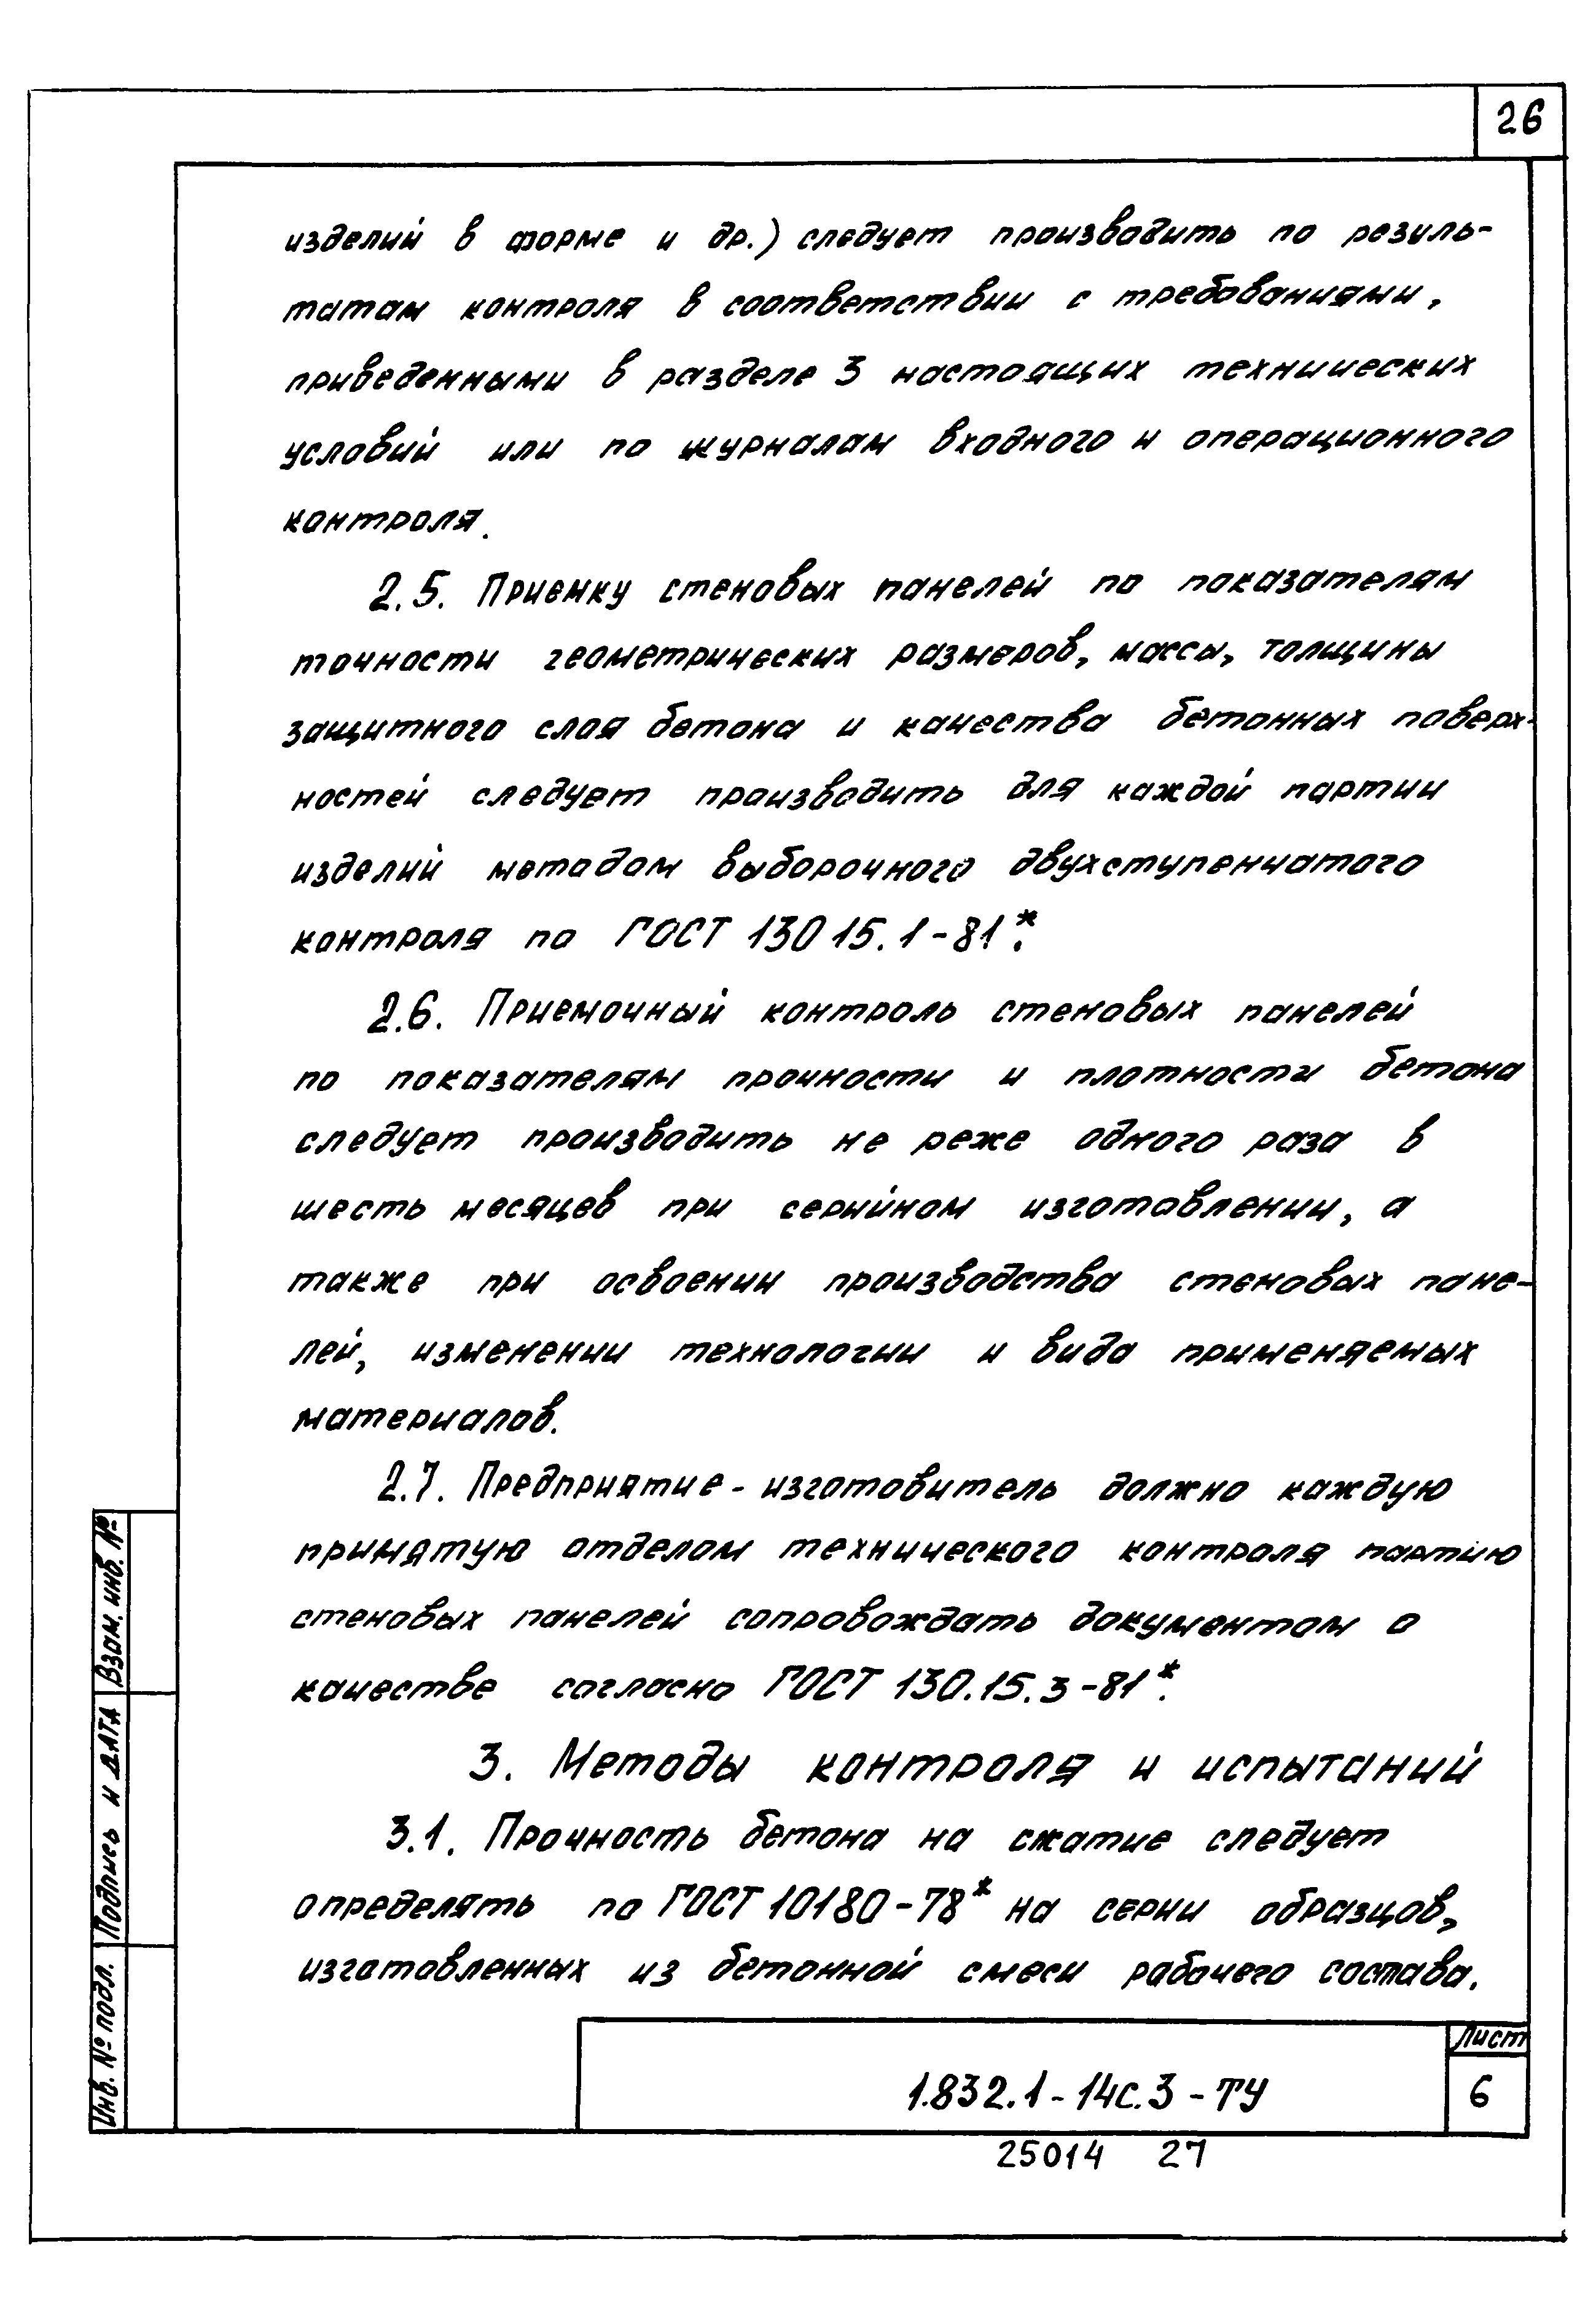 26
изделий в форме и др.) следует производить по резуль-
татам контроля в соответствии с требованиями,
приведенными в разделе 3 настоящих технических
условий или по журналам входного и операционного
контроля.
2.5. Приемку стеновых панелей по показателям
точности геометрических размеров, массы, толщины
защитного слоя бетона и качества бетонных поверх-
ностей следует производить для каждой партии
изделий методом выборочного двухступенчатого
контроля по ГОСТ 13015.1-81*.
2.6. Приемочный контроль стеновых панелей
по показателям прочности и плотности бетона
следует производить не реже одного раза в
шесть месяцев при серийном изготовлении, а
также при освоении производства стеновых пане-
лей, изменении технологии и вида применяемых
материалов.
2.7. Предприятие-изготовитель должно каждую
принятую отделом технического контроля партию
стеновых панелей сопровождать документом о
качестве согласно ГОСТ 130.15.3-81*.
3. Методы контроля и испытаний
3.1. Прочность бетона на сжатие следует
определять по ГОСТ 10180-78* на серии образцов,
изготовленных из бетонной смеси рабочего состава.
Взам. инв. №
Подпись и дата
Инв. № подл.
1.832.1-14с.3-ТУ
Лист
6
25014 27